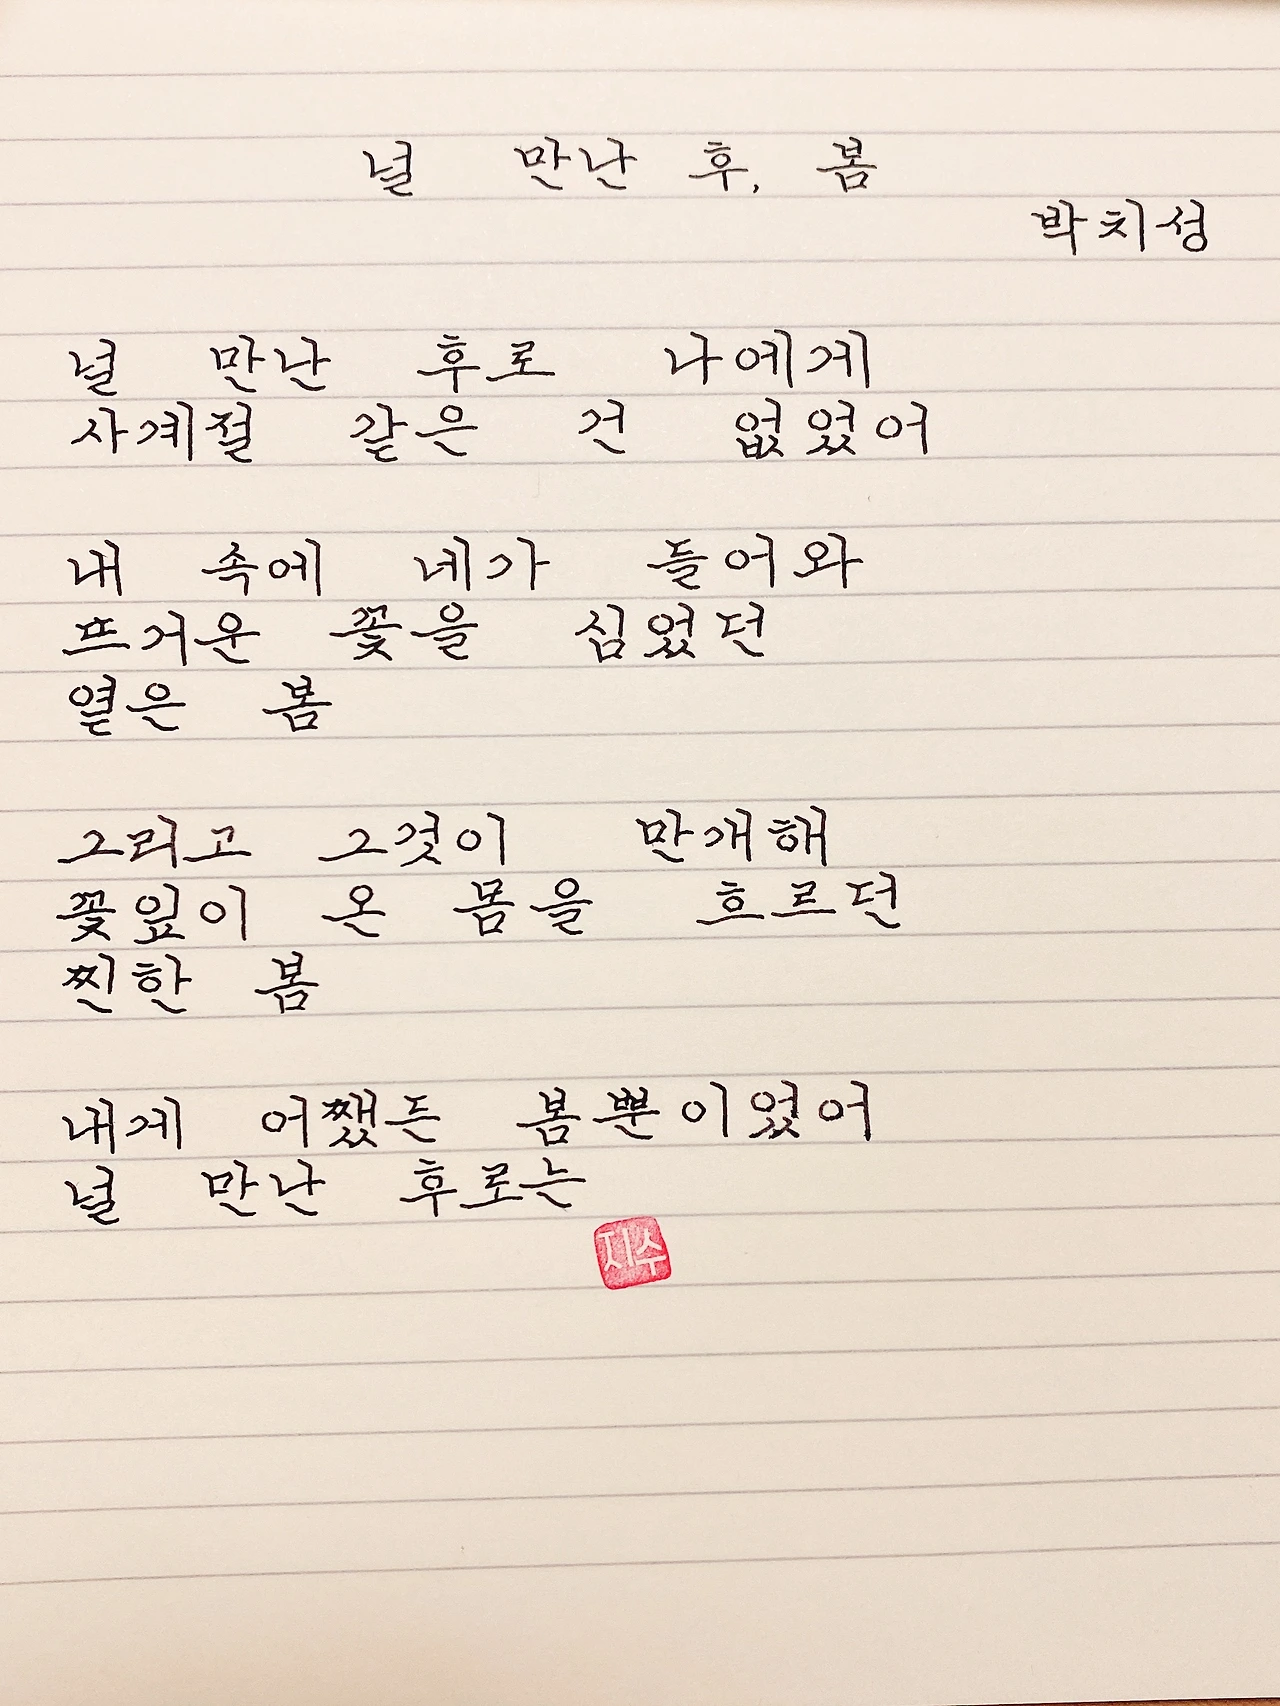 널 만난 후, 봄
박치성
널 만난 후로 나에게
사계절 같은 건 없었어
내 속에 네가 들어와
뜨거운 꽃을 심었던
옅은 봄
그리고 그것이 만개해
꽃잎이 온 몸을 흐르던
찐한 봄
내게 어쨌든 봄뿐이었어
널 만난 후로는
지수